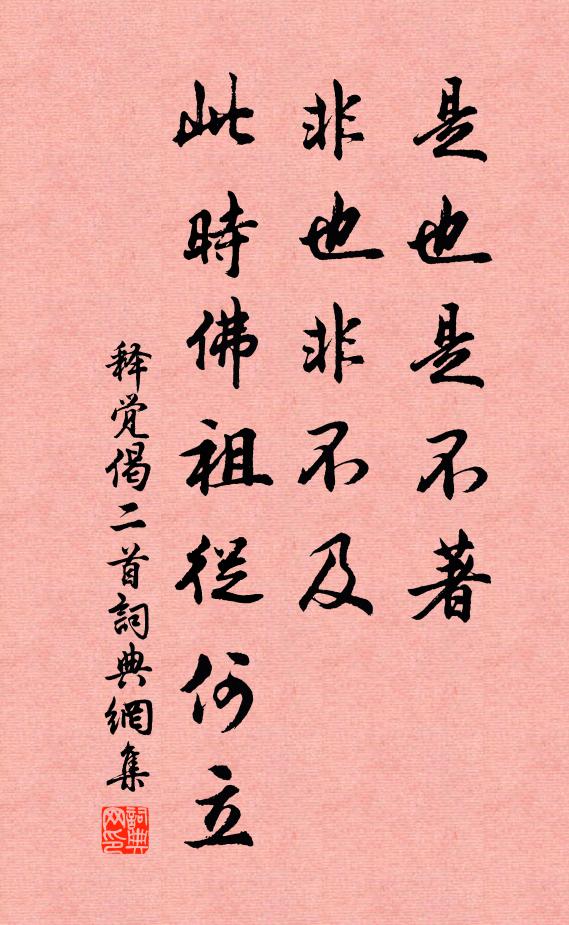 是也是不著
非也非不及
此時佛祖從何立
释觉偈二首詞典網集
詞典网印